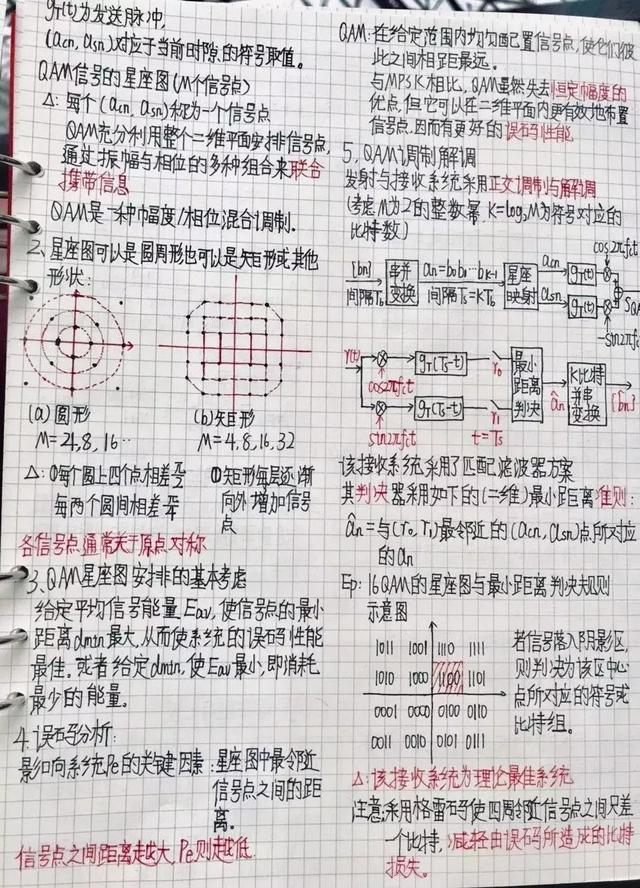 g_T(t)为发送脉冲,
(a_cn, a_sn)对应于当前时隙的符号取值。
QAM信号的星座图(M个信号点)
Δ: 每个(a_cn, a_sn)称为一个信号点
QAM充分利用整个二维平面安排信号点,
通过振幅与相位的多种组合来联合
携带信息
QAM是一种幅度/相位混合调制.
2、星座图可以是圆周形也可以是矩形或其他
形状:
(a)圆形
(b)矩形
M=2,4,8,16…
M=4,8,16,32
Δ: ①每个圆上四个点相差
①矩形每层逐渐
每两个圆间相差
向外增加信号
点
各信号点通常关于原点对称
3、QAM星座图安排的基本考虑
给定平均信号能量Eav,使信号点的最小
距离dmin最大,从而使系统的误码性能
最佳。或者给定dmin,使Eav最小,即消耗
最少的能量。
4、误码分析:
影响系统Pe的关键因素:星座图中最邻近
信号点之间的距
离。
信号点之间距离越大,Pe则越低.
QAM:在给定范围内均匀配置信号点,使它们彼
此之间相距最远。
与MPSK相比,QAM虽然失去恒定幅度的
优点,但它可以在二维平面内更有效地布置
信号点,因而有更好的误码性能
5、QAM调制解调
发射与接收系统采用正交调制与解调
(考虑M为2的整数幂,K=log₂M为符号对应的
比特数)
cos2πfct
{bn}
间隔Tb
串并
变换
an=b0b1…bK-1
间隔Ts=KTb
星座
映射
acn
asn
g_T(t)
g_T(t)
-sin2πfct
r(t)
cos2πfct
g_T(Ts-t)
r0
最小
距离
判决
ân
K比特
并串
变换
{b̂n}
sin2πfct
g_T(Ts-t)
r1
t=Ts
该接收系统采用了匹配滤波器方案
其判决器采用如下的(二维)最小距离准则:
ân=与(r0,r1)最邻近的(acn,asn)点所对应
的an
Ep: 16QAM的星座图与最小距离判决规则
示意图
1011 1001 1110 1111
1010 1000 1100 1101
0001 0000 0100 0110
0011 0010 0101 0111
若信号落入阴影区,
则判决为该区中心
点所对应的符号或
比特组。
Δ:该接收系统为理论最佳系统
注意:采用格雷码使四周邻近信号点之间只差
一个比特,减轻由误码所造成的比特
损失。